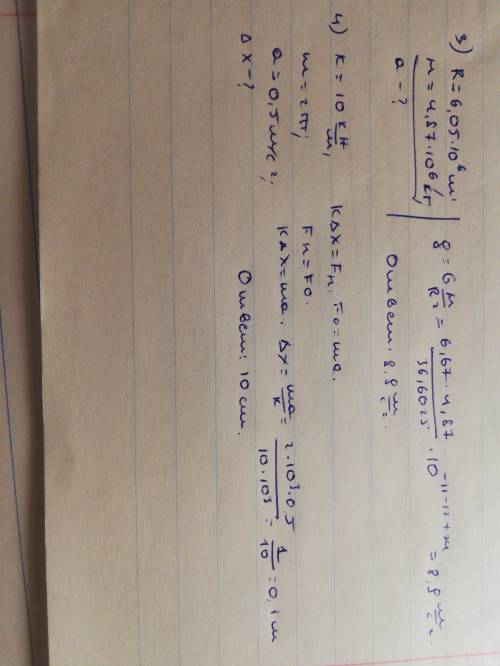 3) R = 6,05·10⁶ м;
M = 4,87·10⁶ кг,
a - ?
g = G M/R² = 6,67·4,87/36,6025 · 10⁻¹¹⁻¹²⁺²⁴ = 8,8 м/с².
Ответ: 8,8 м/с².
4) k = 10 кН/м,
m = 2т;
a = 0,5 м/с²,
Δx - ?
kΔx = Fн. F0 = ma.
Fн = F0.
kΔx = ma. Δx = ma/k = 2·10³·0.5/10·10³ = 1/10 = 0,1 м
Ответ: 10 см.